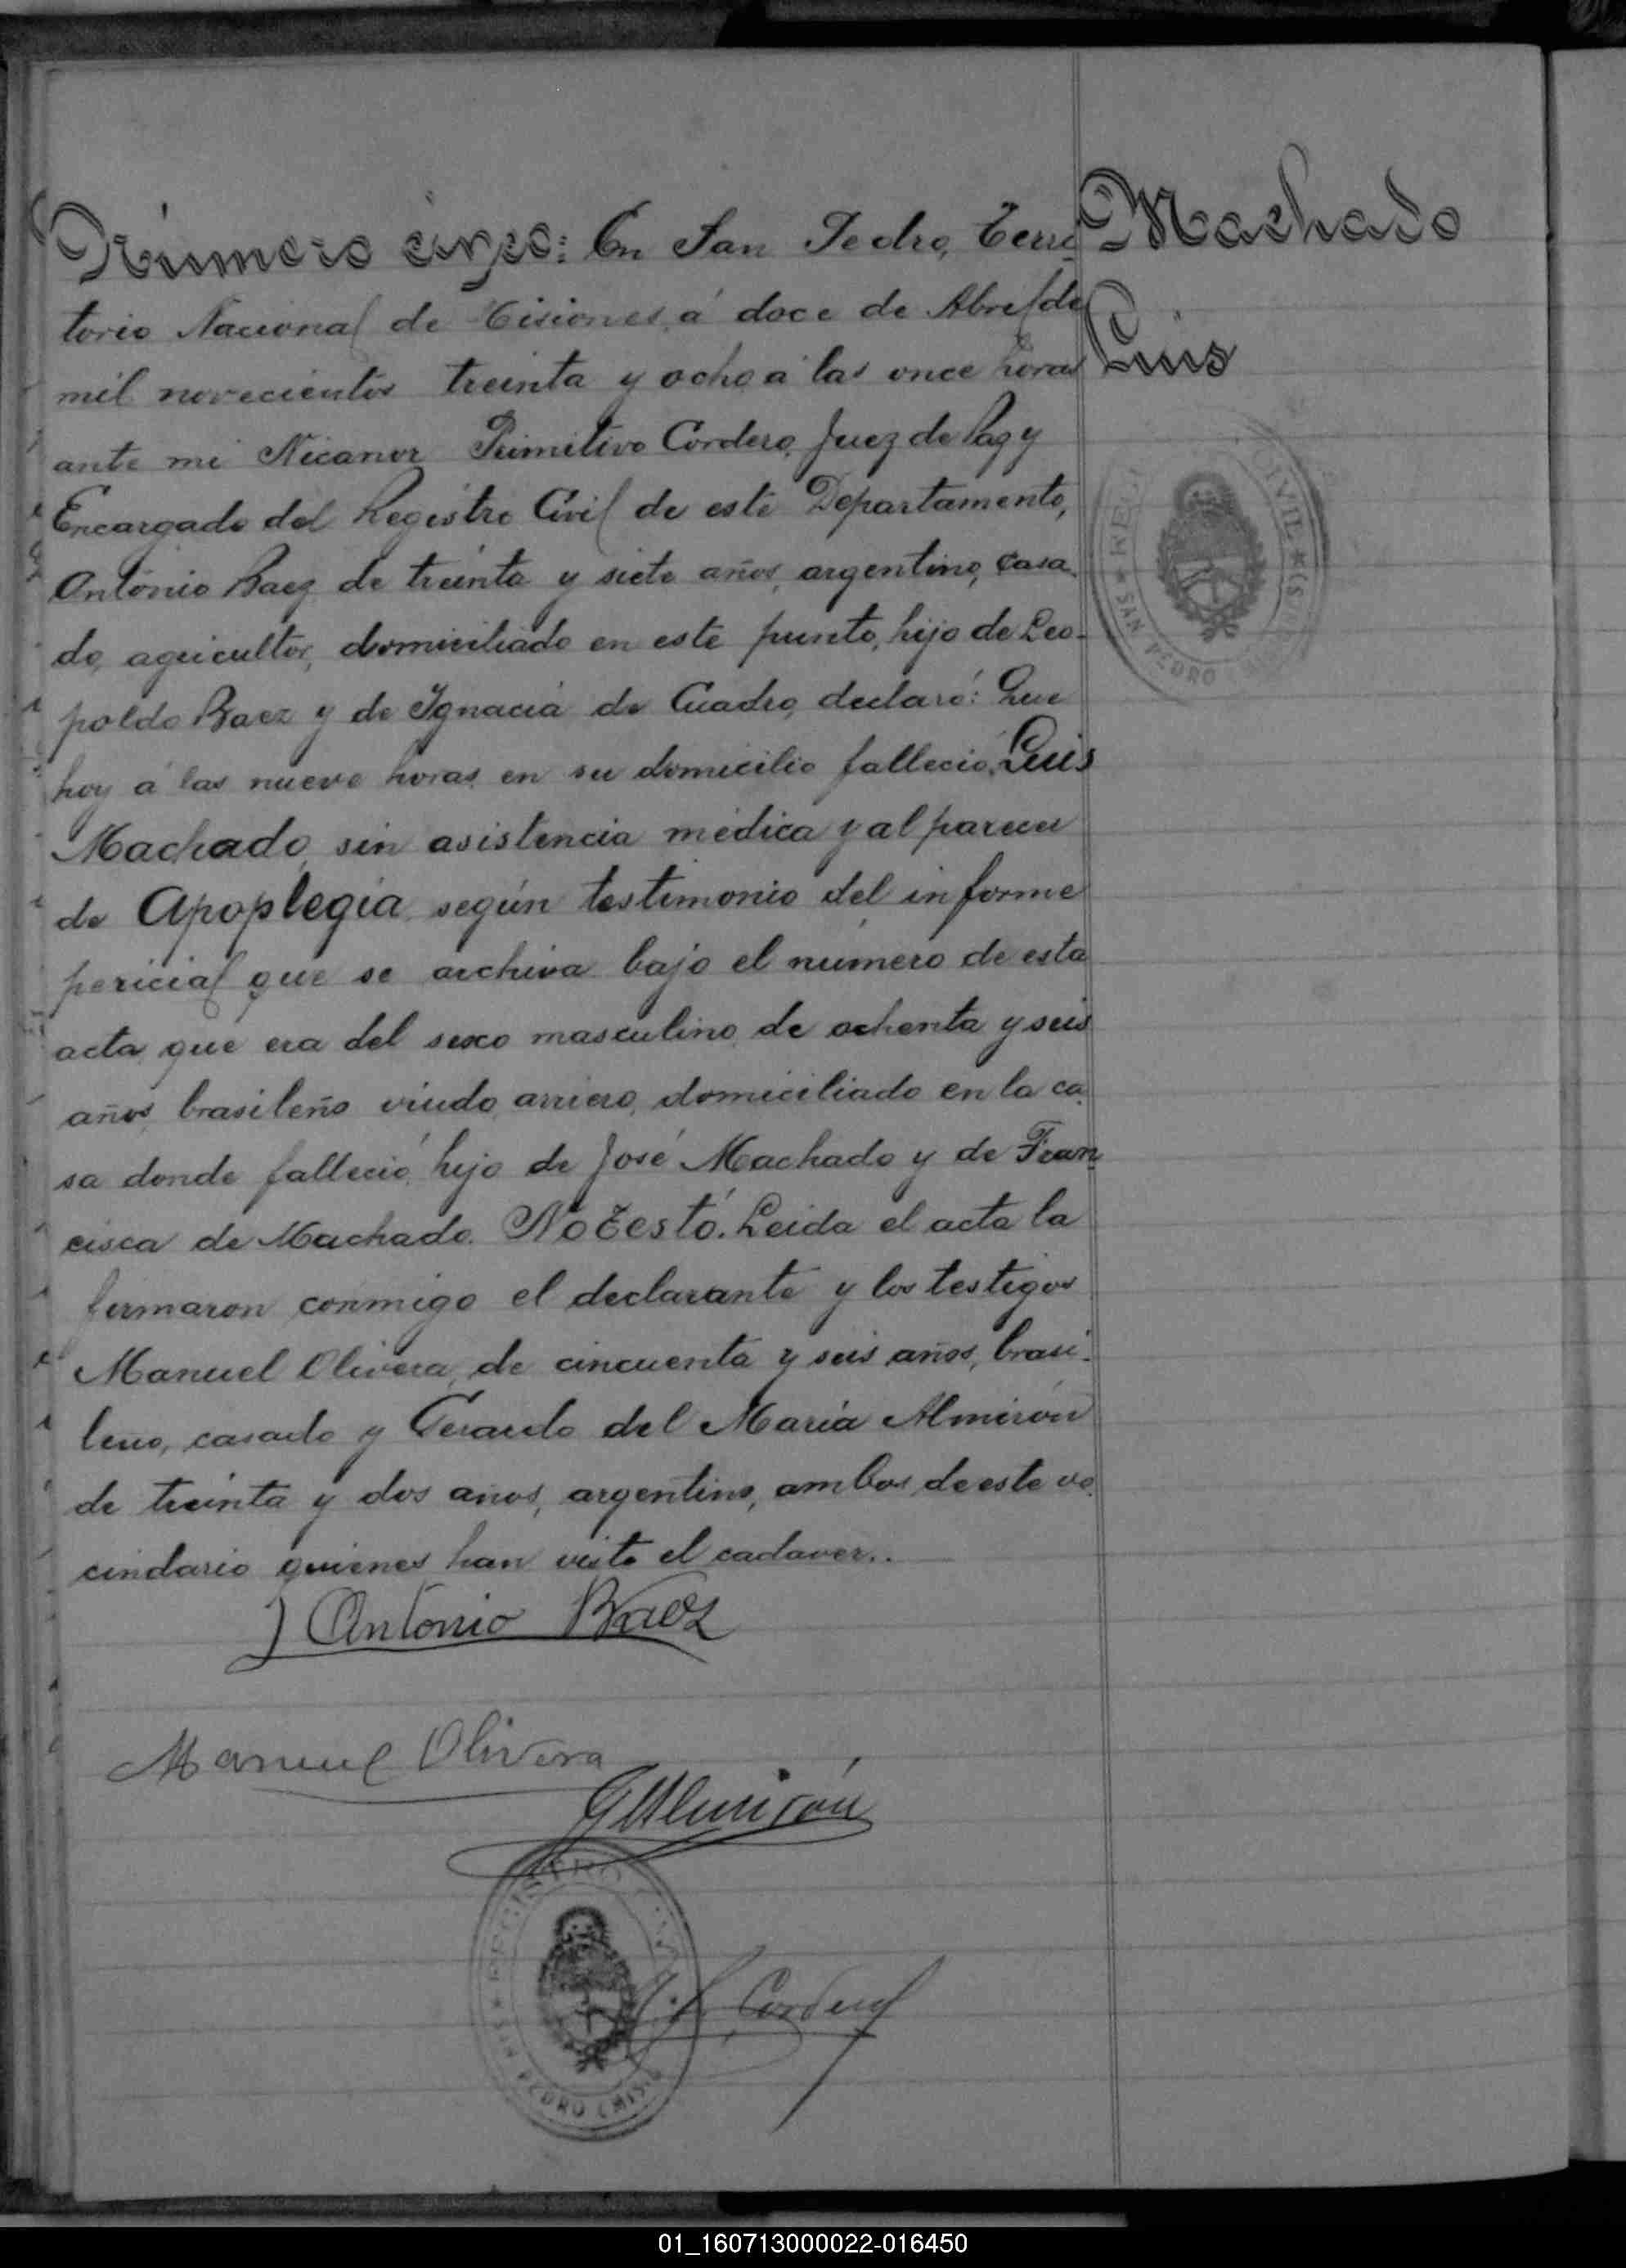 Número cinco: En San Pedro, Terri-
torio Nacional de Misiones, á doce de Abril de
mil novecientos treinta y ocho a las once horas
ante mi Nicanor Primitivo Cordero, Juez de Paz y
Encargado del Registro Civil de este Departamento,
Antonio Baez de treinta y siete años, argentino, casa-
do, agricultor, domiciliado en este punto, hijo de Leo-
poldo Baez y de Ignacia de Cuadro, declaró: Que
hoy á las nueve horas en su domicilio falleció Luis
Machado, sin asistencia médica y al parecer
de Apoplegía según testimonio del informe
pericial que se archiva bajo el número de esta
acta, que era del sexo masculino de ochenta y seis
años brasileño viudo, arriero, domiciliado en la ca-
sa donde falleció, hijo de José Machado y de Fran-
cisca de Machado. No Testó. Leida el acta la
firmaron conmigo el declarante y los testigos
Manuel Olivera, de cincuenta y seis años, brasi-
leño, casado y Gerardo del María Almirón
de treinta y dos años, argentino, ambos de este ve-
cindario quienes han visto el cadaver..
Antonio Baez
Manuel Olivera
G Almirón
Cordero
REGISTRO
SAN PEDRO (MIS
Machado
Luis
CIVIL
SAN PEDRO
01_160713000022-016450